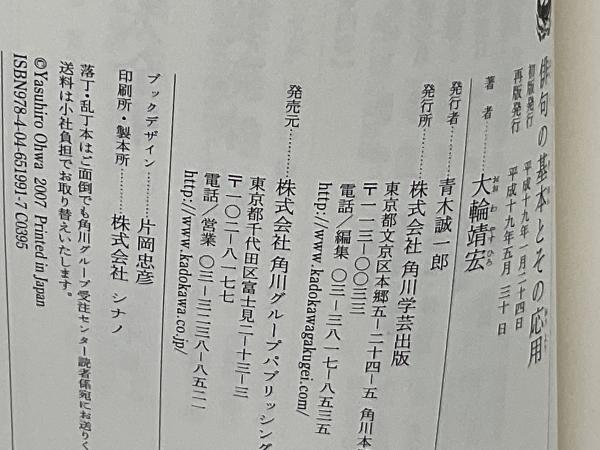 俳句の基本とその応用
初版発行 平成十九年一月二十四日
再版発行 平成十九年五月三十日
著者………大輪靖宏
おおわやすひろ
発行者………青木誠一郎
発行所………株式会社 角川学芸出版
東京都文京区本郷五-二十四-五 角川本
〒一一三-〇〇三三
電話/編集 〇三-三八一七-八五三五
http://www.kadokawagakugei.com/
発売元………株式会社 角川グループパブリッシング
東京都千代田区富士見二-十三-三
〒一〇二-八一七七
電話/営業 〇三-三二三八-八五二一
http://www.kadokawa.co.jp/
ブックデザイン………片岡忠彦
印刷所・製本所………株式会社 シナノ
落丁・乱丁本はご面倒でも角川グループ受注センター読者係宛にお送りく
送料は小社負担でお取り替えいたします。
©Yasuhiro Ohwa 2007 Printed in Japan
ISBN978-4-04-651991-7 C0395